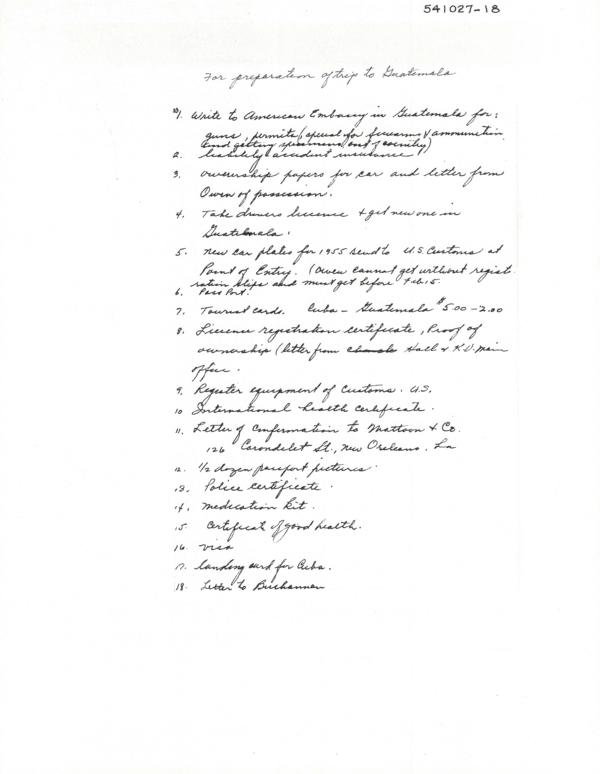 541027-18
For preparation of trip to Guatemala
1. Write to American Embassy in Guatemala for:
guns, permits (special for firearms & ammunition
and getting specimens out of country)
2. liability accident insurance
3. ownership papers for car and letter from
Owen of possession.
4. Take drivers licence + get new one in
Guatemala.
5. new car plates for 1955 send to U.S. Customs at
Point of Entry. (Owen cannot get without regist-
ration slips and must get before Feb. 15.
6. Pass Port.
7. Tourist cards. Cuba - Guatemala $5.00 - 2.00
8. Licence registration certificate, Proof of
ownership (letter from Hall & K.U. main
office.
9. Register equipment of Customs. U.S.
10 International health certificate.
11. Letter of confirmation to Mattoon & Co.
126 Carondelet St., New Orleans. La
12. 1/2 dozen passport pictures.
13. Police certificate.
14. medication kit.
15 Certificate of good health.
16. visa
17. landing card for Cuba.
18. Letter to Buchannan